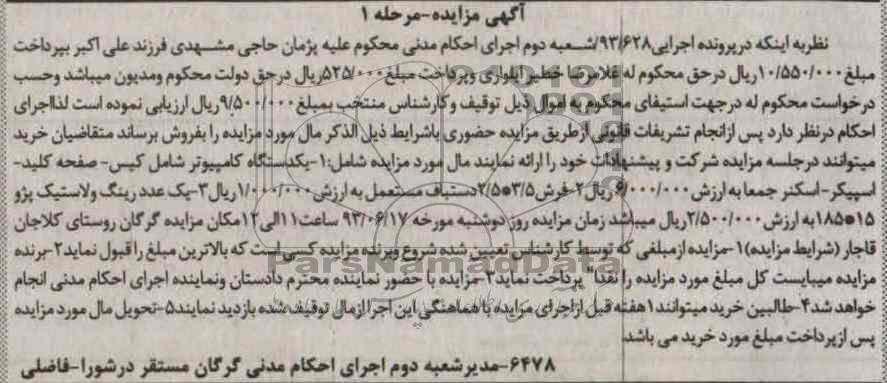 آگهی مزایده-مرحله ۱
نظر به اینکه در پرونده اجرایی ۹۳/۶۲۸/شعبه دوم اجرای احکام مدنی محکوم علیه پژمان حاجی مشهدی فرزند علی اکبر بپرداخت
مبلغ ۱۰/۵۵۰/۰۰۰ریال درحق محکوم له غلامرضا خطیر ایلواری وپرداخت مبلغ ۵۲۵/۰۰۰ریال درحق دولت محکوم ومدیون میباشد وحسب
درخواست محکوم له درجهت استیفای محکوم به اموال ذیل توقیف وکارشناس منتخب بمبلغ ۹/۵۰۰/۰۰۰ریال ارزیابی نموده است لذااجرای
احکام درنظر دارد پس ازانجام تشریفات قانونی ازطریق مزایده حضوری باشرایط ذیل الذکر مال مورد مزایده را بفروش برساند متقاضیان خرید
میتوانند درجلسه مزایده شرکت و پیشنهادات خود را ارائه نمایند مال مورد مزایده شامل:۱-یکدستگاه کامپیوتر شامل کیس- صفحه کلید-
اسپیکر-اسکنر جمعا به ارزش ۶/۰۰۰/۰۰۰ریال ۲-فرش ۳/۵*۲/۵دستباف مستعمل به ارزش ۱/۰۰۰/۰۰۰ریال ۳-یک عدد رینگ ولاستیک پژو
۱۵*۱۸۵به ارزش ۲/۵۰۰/۰۰۰ریال میباشد زمان مزایده روز دوشنبه مورخه ۹۳/۰۶/۱۷ ساعت ۱۱الی ۱۲مکان مزایده گرگان روستای کلاجان
قاجار (شرایط مزایده)۱-مزایده ازمبلغی که توسط کارشناس تعیین شده شروع وبرنده مزایده کسی است که بالاترین مبلغ را قبول نماید۲-برنده
مزایده میبایست کل مبلغ مورد مزایده را نقدا" پرداخت نماید۳-مزایده با حضور نماینده محترم دادستان ونماینده اجرای احکام مدنی انجام
خواهد شد۴-طالبین خرید میتوانند ۱هفته قبل ازاجرای مزایده با هماهنگی این اجرا ازمال توقیف شده بازدید نمایند۵-تحویل مال مورد مزایده
پس ازپرداخت مبلغ مورد خرید می باشد
۶۴۷۸-مدیرشعبه دوم اجرای احکام مدنی گرگان مستقر درشورا-فاضلی
ParsNamadData